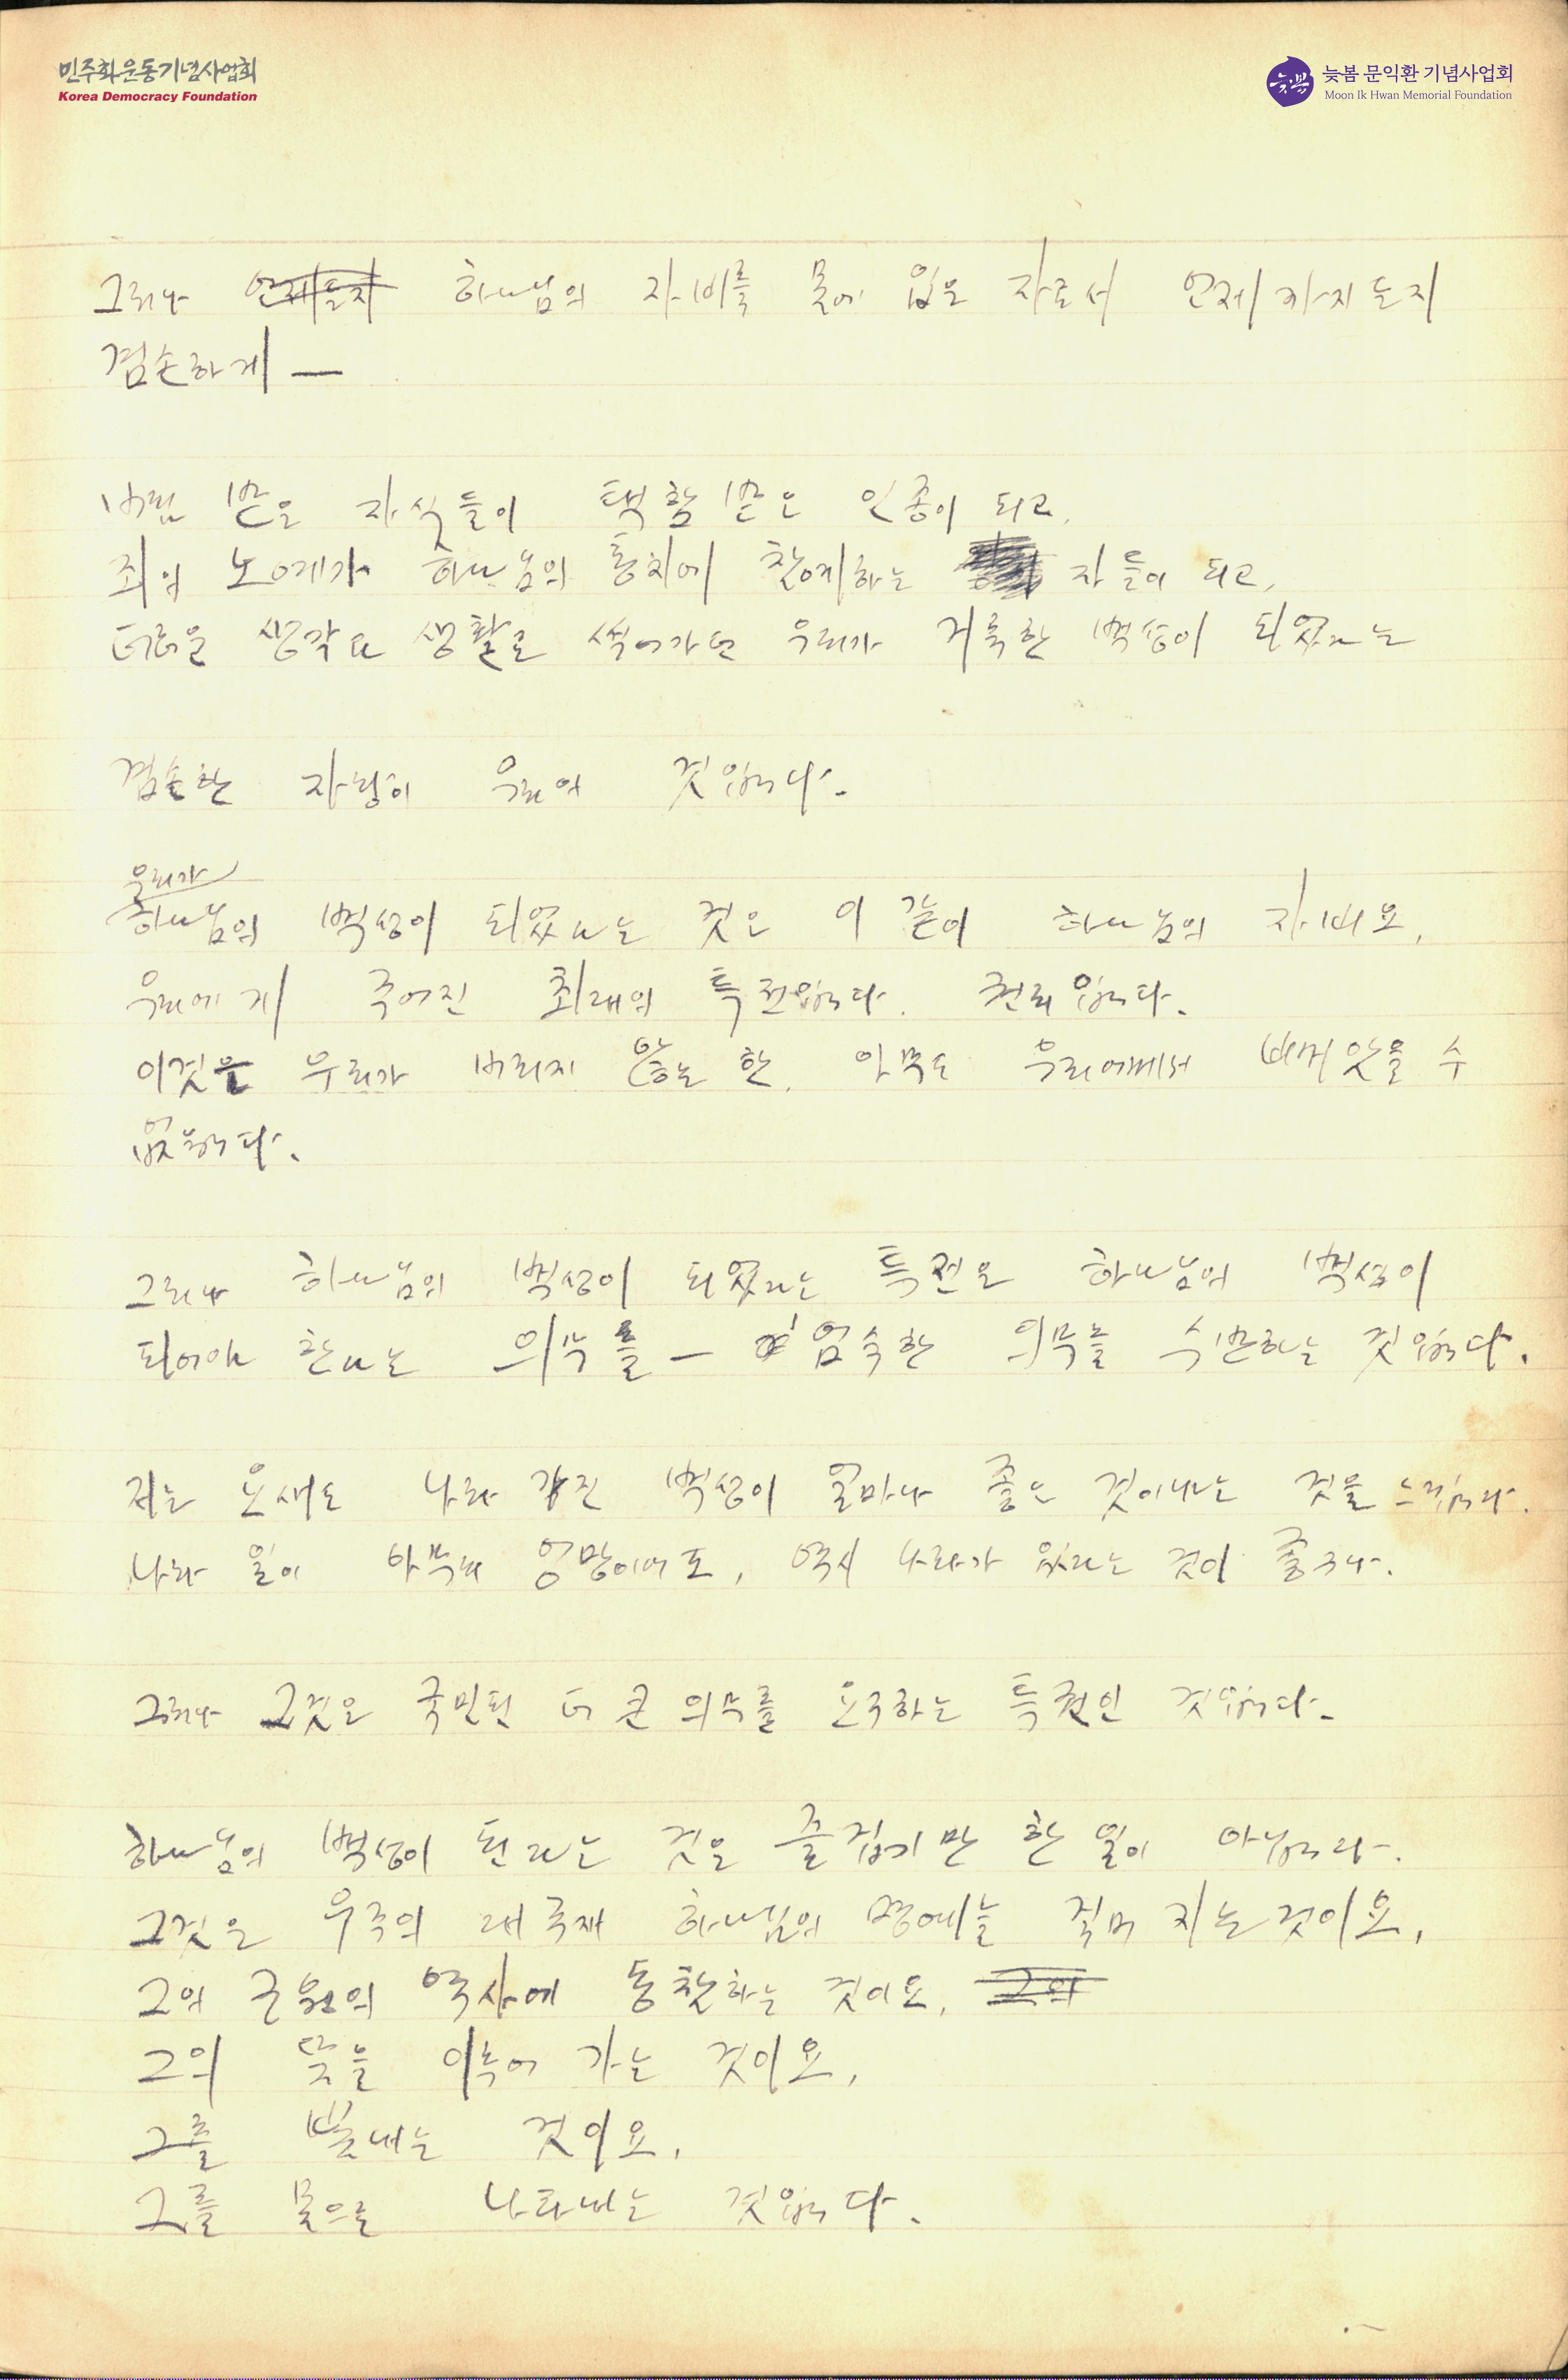 민주화운동기념사업회
Korea Democracy Foundation
늦봄 문익환 기념사업회
Moon Ik Hwan Memorial Foundation
그러나 언제든지 하나님의 자비를 몸에 입은 자로서 언제까지든지
겸손하게 —
버림 받은 자식들이 택함 받은 인종이 되고,
죄의 노예가 하나님의 통치에 참예하는 자들이 되고,
더러운 생각과 생활로 썩어가던 우리가 거룩한 백성이 되었다는
겸손한 자랑이 우리의 것입니다.
우리가
하나님의 백성이 되었다는 것은 이 같이 하나님의 자비요,
우리에게 주어진 최대의 특전입니다. 권리입니다.
이것을 우리가 버리지 않는 한, 아무도 우리에게서 빼앗을 수
없습니다.
그러나 하나님의 백성이 되었다는 특전은 하나님의 백성이
되어야 한다는 의무를 — 엄숙한 의무를 수반하는 것입니다.
저는 요새도 나라 가진 백성이 얼마나 좋은 것이냐는 것을 느낍니다.
나라 일이 아무리 엉망이어도, 역시 나라가 있다는 것이 좋구나.
그러나 그것은 국민된 더 큰 의무를 요구하는 특권인 것입니다.
하나님의 백성이 된다는 것은 즐겁기만 한 일이 아닙니다.
그것은 우주의 대주재 하나님의 멍에를 짊어 지는 것이요,
그의 구원의 역사에 동참하는 것이요, 그의
그의 뜻을 이루어 가는 것이요,
그를 빛내는 것이요,
그를 몸으로 나타내는 것입니다.